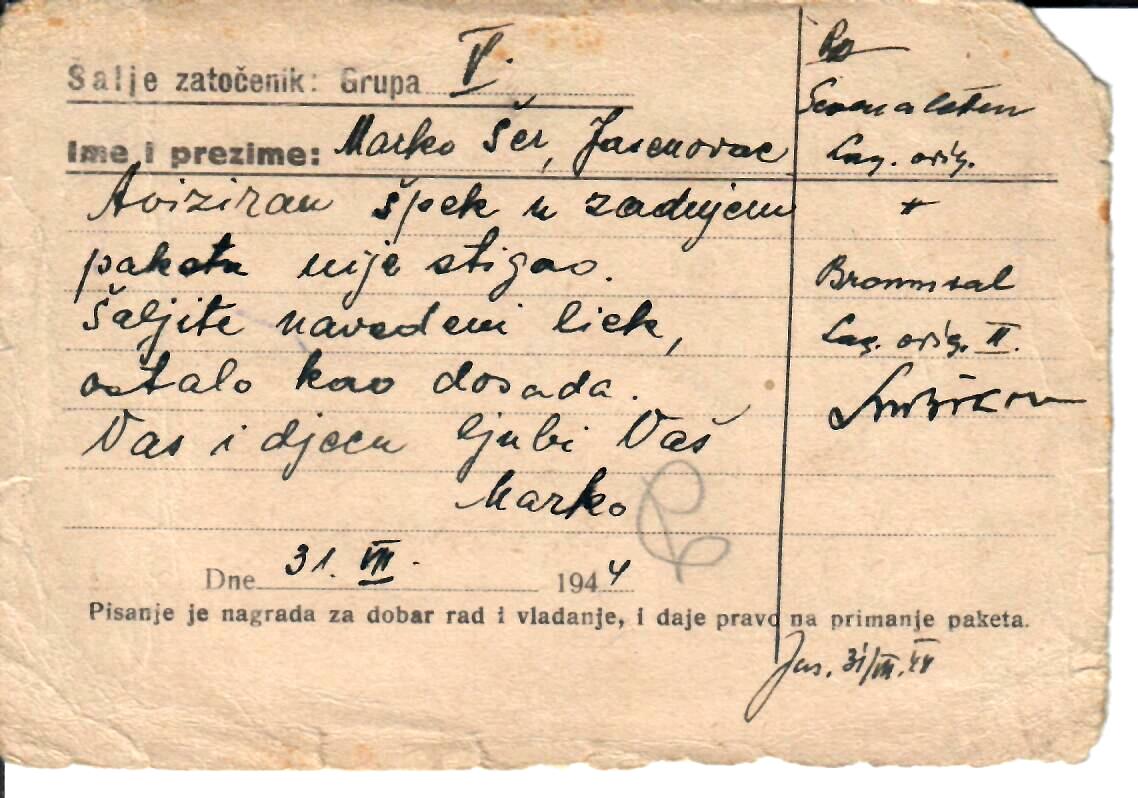 Šalje zatočenik: Grupa V.
Ime i prezime: Marko Šer, Jasenovac
Aviziran špek u zadnjem
paketu nije stigao.
Šaljite navedeni liek,
ostalo kao dosada.
Vas i djecu ljubi Vaš
Marko
Dne 31. VIII. 1944
Pisanje je nagrada za dobar rad i vladanje, i daje pravo na primanje paketa.
Rp
Lag. orig.
+
Bromural
Lag. orig. II.
Jas. 31/VIII. 44